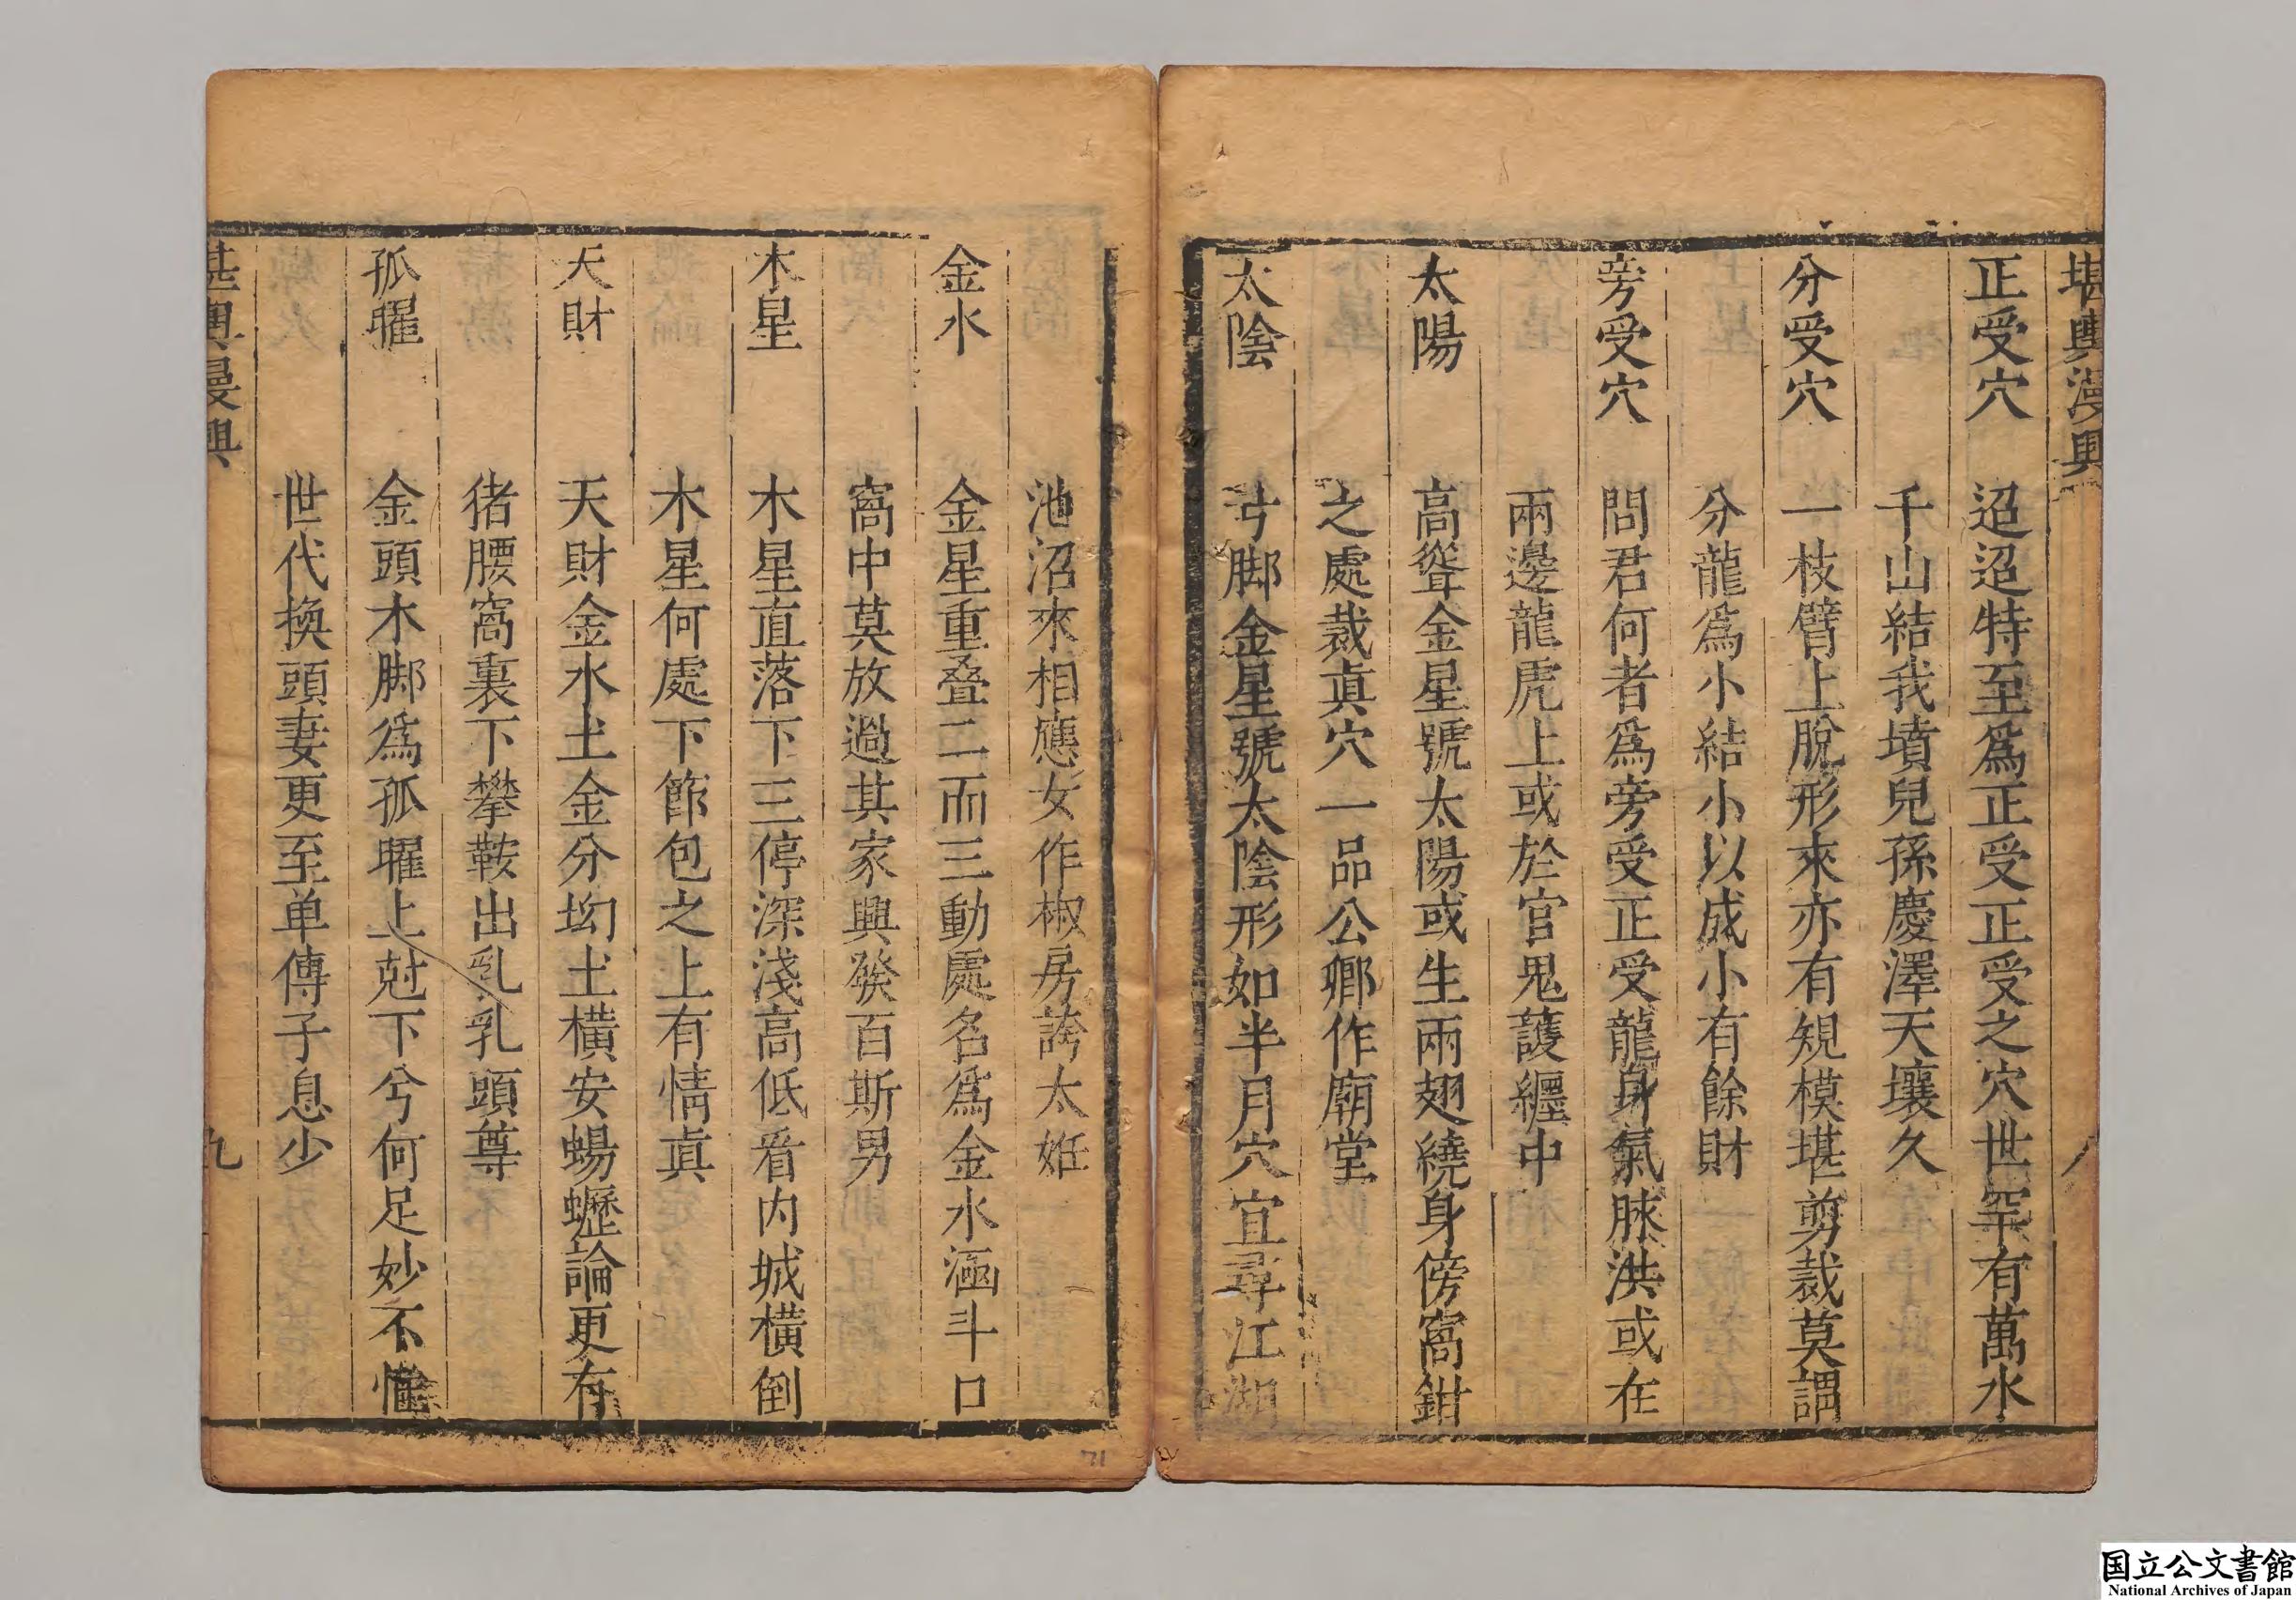 堪輿漫興
八
正受穴 迢迢特至爲正受正受之穴世罕有萬水
千山結我墳兒孫慶澤天壤久
分受穴 一枝臂上脫形來亦有規模堪剪裁莫謂
分龍爲小結小以成小有餘財
旁受穴 問君何者爲旁受正受龍身氣脉洪或在
兩邊龍虎上或於官鬼護纒中
太陽 高聳金星號太陽或生兩翅繞身傍窩鉗
之處裁眞穴一品公卿作廟堂
太陰 弓脚金星號太陰形如半月穴宜尋江湖
池沼來相應女作椒房誇太姙
金水 金星重叠二而三動處名爲金水涵斗口
窩中莫放過其家興發百斯男
木星 木星直落下三停深淺高低看内城横倒
木星何處下節包之上有情眞
天財 天財金水土金分㘭土横安蜴蠦論更有
猪腰窩裏下攀鞍出乳乳頭尊
孤曜 金頭木脚爲孤曜上尅下兮何足妙不惟
世代換頭妻更至单傳子息少
堪輿漫興
九
国立公文書館
National Archives of Japan
71